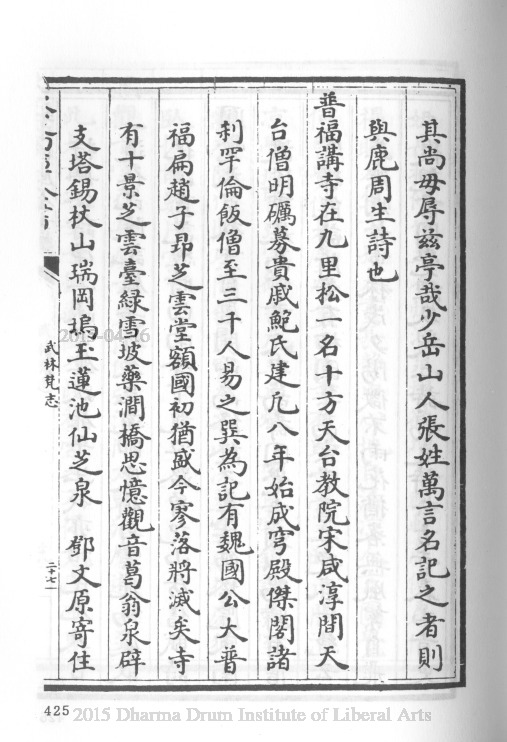 其尚毋辱茲亭哉少岳山人張姓萬言名記之者則
與鹿周生詩也
普福講寺在九里松一名十方天台教院宋咸淳間天
台僧明礪募貴戚鮑氏建凢八年始成穹殿傑閣諸
刹罕倫飯僧至三千人易之巽為記有魏國公大普
福扁趙子昂芝雲堂額國初猶盛今寥落將滅矣寺
有十景芝雲臺綠雪坡藥澗橋思憶觀音葛翁泉辟
支塔錫杖山瑞岡塢玉蓮池仙芝泉 鄧文原寄住
武林梵志
二十七
2015-04-16
425
2015 Dharma Drum Institute of Liberal Arts